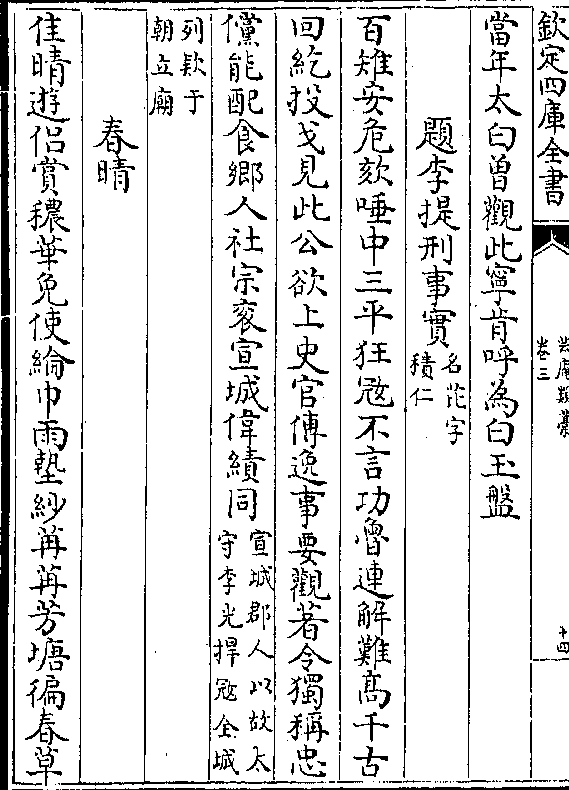 欽定四庫全書
卷三
十四
當年太白曾觀此寧肯呼為白玉盤
題李提刑事實名芘字
積仁
百雉安危欬唾中三平狂冦不言功魯連解難髙千古
回紇投戈見此公欲上史官傳逸事要觀著令獨稱忠
儻能配食鄉人社宗衮宣城偉績同宣城郡人以故太
守李光捍冦全城
列欵于
朝立廟
春晴
佳晴遊侣賞穠華免使綸巾雨墊紗苒苒芳塘徧春草